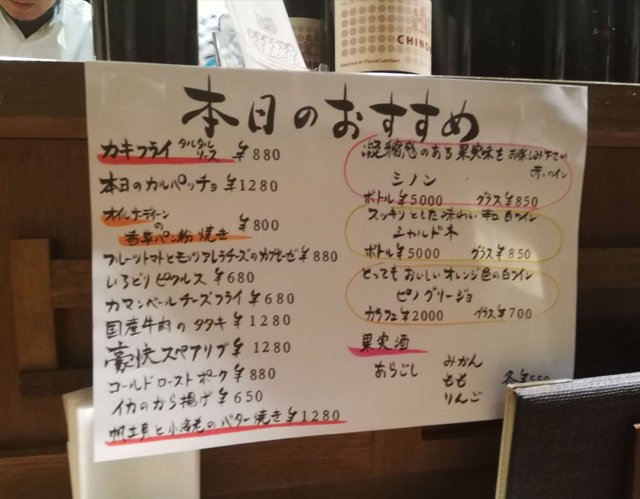 CHINON
Béatrice et Pascal Lambert
本日のおすすめ
カキフライ タルタルソース ¥880
本日のカルパッチョ ¥1280
オイルサーディンの
香草パン粉焼き ¥800
フルーツトマトとモッツァレラチーズのカプレーゼ ¥880
いろどりピクルス ¥680
カマンベールチーズフライ ¥680
国産牛肉のタタキ ¥1280
豪快スペアリブ ¥1280
コールドローストポーク ¥880
イカのから揚げ ¥650
帆立貝と小海老のバター焼き ¥1280
凝縮感のある果実味をお楽しみ下さい
赤ワイン
シノン
ボトル ¥5000 グラス ¥850
スッキリとした味わい 辛口白ワイン
シャルドネ
ボトル ¥5000 グラス ¥850
とってもおいしいオレンジ色の白ワイン
ピノグリージョ
カラフェ ¥2000 グラス ¥700
果実酒
あらごし みかん
もも 各¥550
りんご